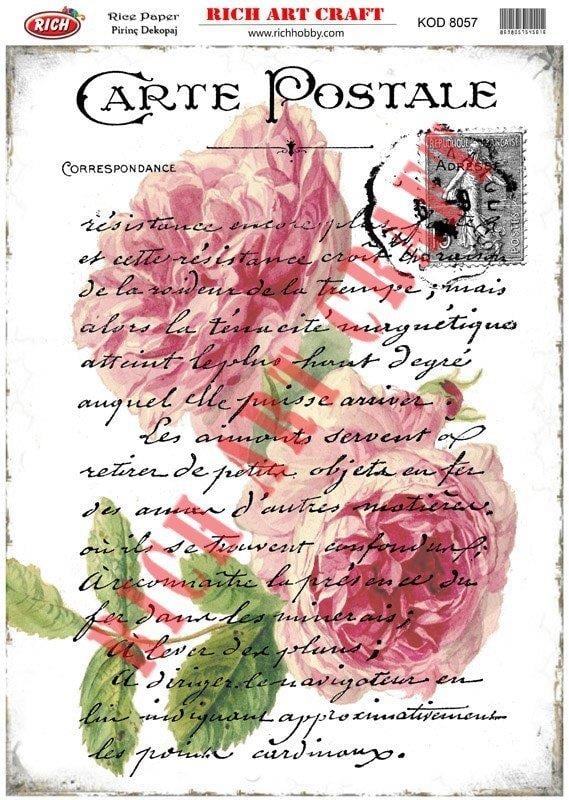 RICH
Rice Paper
Pirinç Dekopaj
RICH ART CRAFT
www.richhobby.com
KOD 8057
CARTE POSTALE
CORRESPONDANCE
REPUBLIQUE FRANÇAISE
POSTES
résistance encore plus
et cette résistance croit
de la roideur de la trempe; mais
alors la ténacité magnétique
atteint le plus haut degré
auquel elle puisse arriver.
Les aimants servent à
retirer de petits objets en fer
des amas d'autres matières.
où ils se trouvent confondus.
À reconnaître la présence du
fer dans les minerais;
À lever des plans;
À diriger le navigateur en
lui indiquant approximativement
les points cardinaux.
RICH ART CRAFT